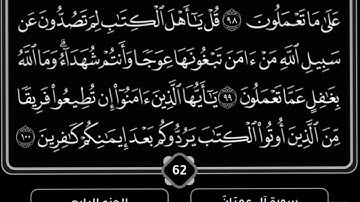 عَلَىٰ مَا تَعْمَلُونَ ٩٨ قُلْ يَـٰٓأَهْلَ ٱلْكِتَـٰبِ لِمَ تَصُدُّونَ عَن
سَبِيلِ ٱللَّهِ مَنْ ءَامَنَ تَبْغُونَهَا عِوَجًا وَأَنتُمْ شُهَدَآءُ ۗ وَمَا ٱللَّهُ
بِغَـٰفِلٍ عَمَّا تَعْمَلُونَ ٩٩ يَـٰٓأَيُّهَا ٱلَّذِينَ ءَامَنُوٓا۟ إِن تُطِيعُوا۟ فَرِيقًا
مِّنَ ٱلَّذِينَ أُوتُوا۟ ٱلْكِتَـٰبَ يَرُدُّوكُم بَعْدَ إِيمَـٰنِكُمْ كَـٰفِرِينَ ١٠٠
62
سورة آل عمران
الجزء الرابع